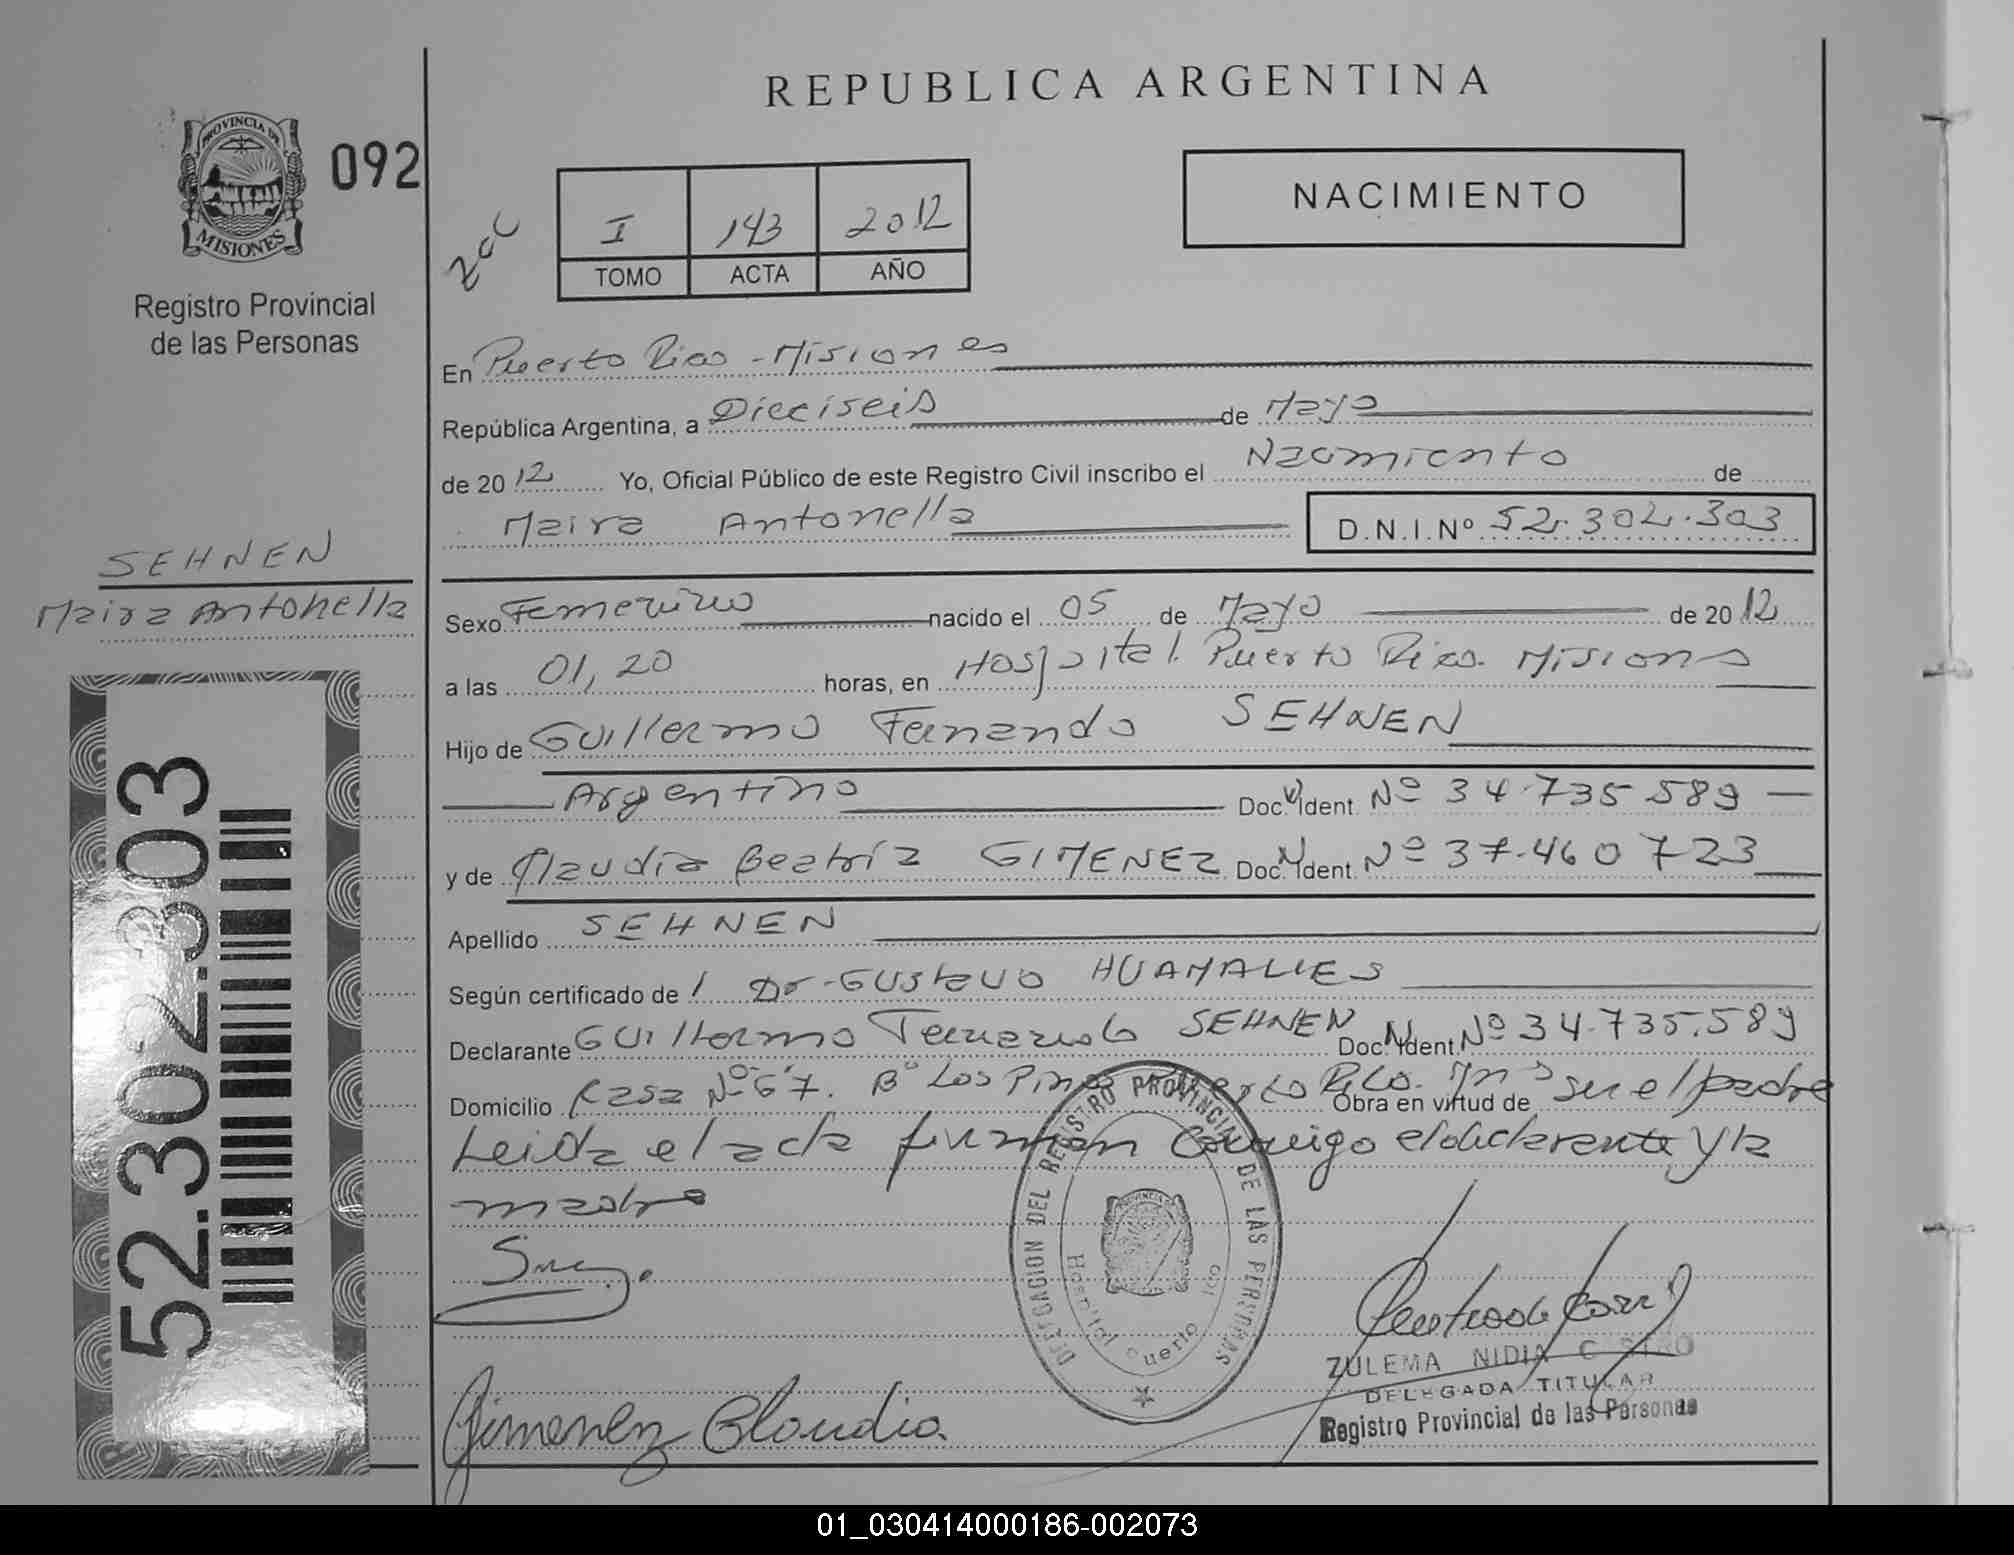 REPUBLICA ARGENTINA
PROVINCIA DE
MISIONES
092
Registro Provincial
de las Personas
I 143 2012
TOMO ACTA AÑO
NACIMIENTO
En Puerto Rico - Misiones
República Argentina, a Dieciseis de Mayo
de 2012 Yo, Oficial Público de este Registro Civil inscribo el Nacimiento de
Maira Antonella D.N.I.Nº 52.302.303
SEHNEN
Maira Antonella
Sexo Femenino nacido el 05 de Mayo de 2012
a las 01,20 horas, en Hospital. Puerto Rico. Misiones
Hijo de Guillermo Fernando SEHNEN
Argentino Doc. Ident. Nº 34.735.589
y de Claudia Beatriz GIMENEZ Doc. Ident. Nº 37.460.723
Apellido SEHNEN
Según certificado de Dr. Gustavo HUAMALIES
Declarante Guillermo Fernando SEHNEN Doc. Ident. Nº 34.735.589
Domicilio Casa Nº 67. Bº Los Pinos Puerto Rico. Obra en virtud de ser el padre
Leida el acta firman conmigo el declarante y la
madre
52.302.303
DELEGACION DEL REGISTRO PROVINCIAL DE LAS PERSONAS
Hospital Puerto Rico
Gimenez Claudia
ZULEMA NIDIA
DELEGADA TITULAR
Registro Provincial de las Personas
01_030414000186-002073